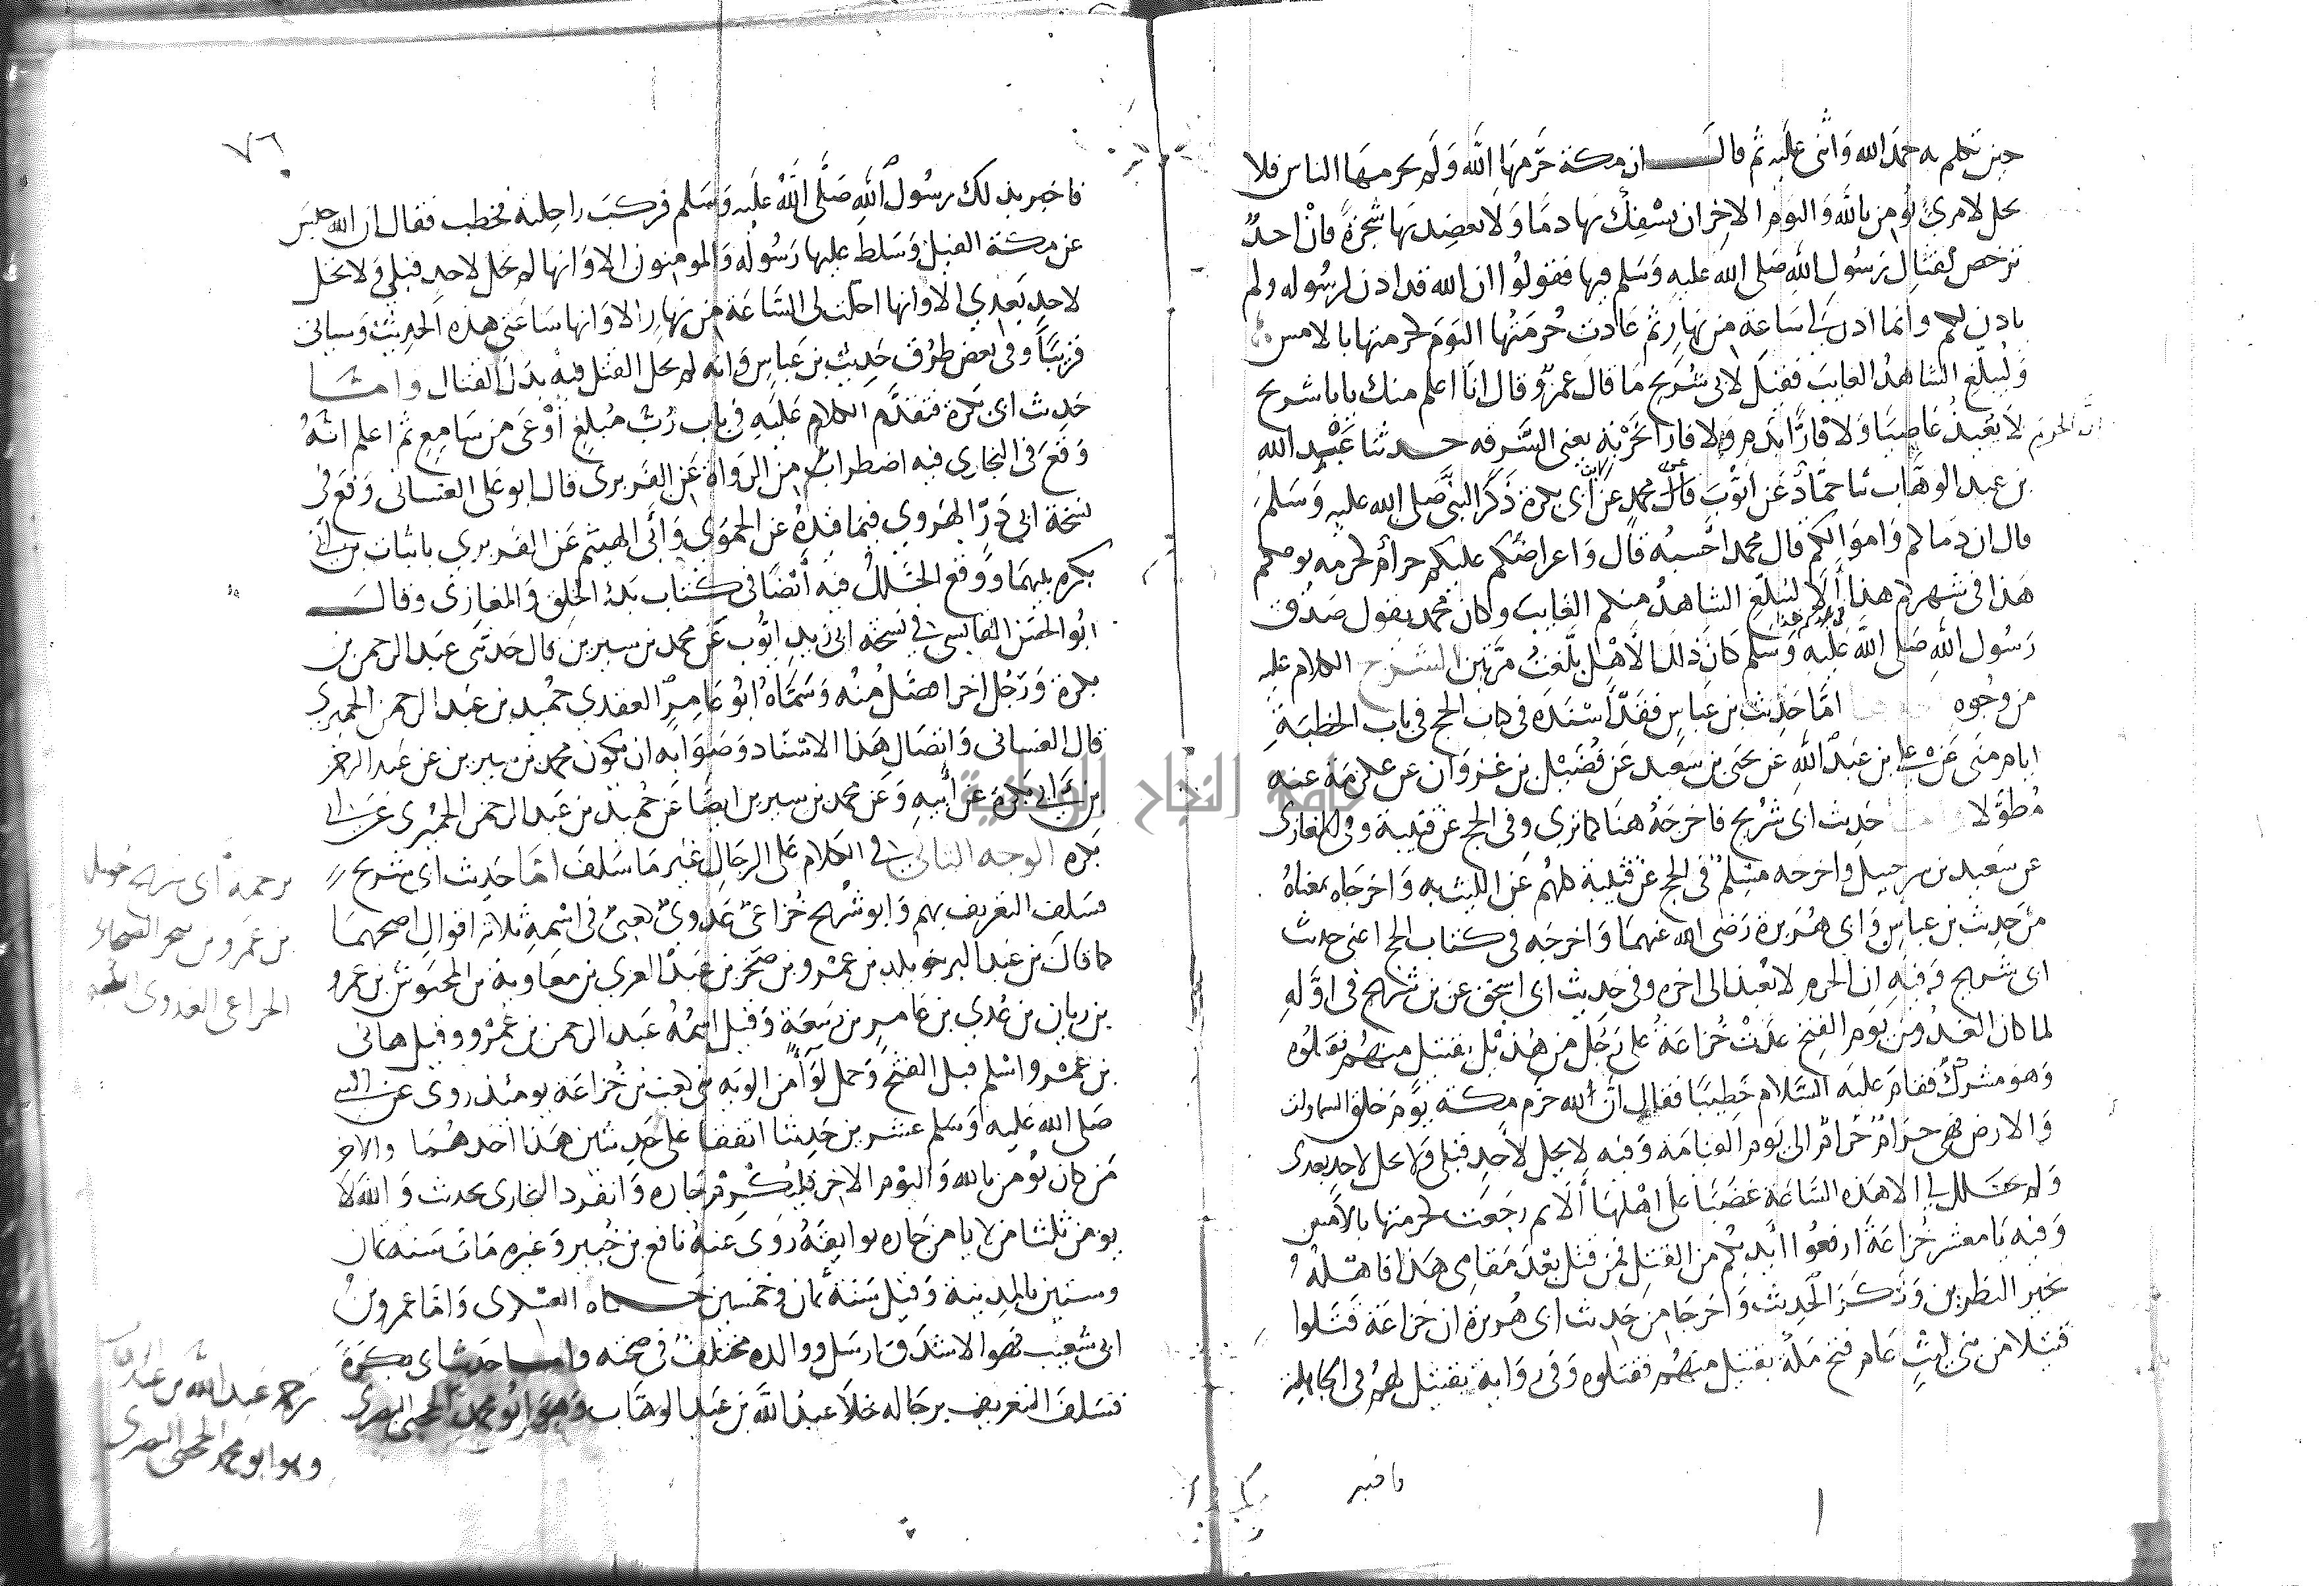 حين تكلم به حمد الله وأثنى عليه ثم قال ان مكة حرمها الله ولم يحرمها الناس فلا
يحل لامرئ يؤمن بالله واليوم الاخر ان يسفك بها دما ولا يعضد بها شجرة فان احد
ترخص لقتال رسول الله صلى الله عليه وسلم فيها فقولوا ان الله قد اذن لرسوله ولم
ياذن لكم وانما اذن لي ساعة من نهار ثم عادت حرمتها اليوم لحرمتها بالامس
وليبلغ الشاهد الغايب فقيل لابي شريح ما قال عمرو قال انا اعلم منك يابا شريح
ان الحرم لا يعيذ عاصيا ولا فارا بدم ولا فارا بخربة يعني السرقه حدثنا عبد الله
بن عبد الوهاب نا حماد عن ايوب عن محمد عن ابن ابي بكرة ذكر النبي صلى الله عليه وسلم
قال ان دماكم واموالكم قال محمد احسبه قال واعراضكم عليكم حرام لحرمه يومكم
هذا في شهركم هذا ألا ليبلغ الشاهد منكم الغايب وكان محمد يقول صدق
رسول الله صلى الله عليه وسلم كان ذلك ألا هل بلغت مرتين الشرح الكلام عليه
من وجوه اما حديث بن عباس فقد اسنده في كتاب الحج في باب الخطبة
ايام منى عن علي بن عبد الله عن يحيى بن سعيد عن فضيل بن غزوان عن عكرمة عنه
مطولا حديث ابي شريح فاخرجه هنا كما ترى وفي الحج عن قتيبة وفي المغازي
عن سعيد بن شرحبيل واخرجه مسلم في الحج عن قتيبة كلهم عن الليث به واخرجاه بمعناه
من حديث بن عباس وابي هريرة رضي الله عنهما واخرجه في كتاب الحج اعني حديث
ابي شريح وفيه ان الحرم لا يعيذ الى اخره وفي حديث ابن اسحق عن بن شريح في اوله
لما كان الغد من يوم الفتح عدت خزاعة على رجل من هذيل بقتيل منهم فقتلوه
وهو مشرك فقام عليه السلام خطيبا فقال ان الله حرم مكة يوم خلق السماوات
والارض فهي حرام حرام الى يوم القيامة وفيه لا يحل لأحد قبلي ولا يحل لاحد بعدي
ولم تحلل لي الا هذه الساعة غضبا على اهلها ألا ثم رجعت لحرمتها بالأمس
وفيه يا معشر خزاعة ارفعوا ايديكم من القتل فمن قتل بعد مقامي هذا فاهله
بخير النظرين وذكر الحديث واخرجا من حديث ابي هريرة ان خزاعة قتلوا
قتيلا من بني ليث عام فتح مكة بقتيل منهم فقتلوه وفي رواية بقتيل لهم في الجاهلية
٧٦
فاخبر بذلك رسول الله صلى الله عليه وسلم فركب راحلته فخطب فقال ان الله حبس
عن مكة الفيل وسلط عليها رسوله والمومنون الا وانها لم تحل لاحد قبلي ولا تحل
لاحد بعدي الا وانها احلت لي الساعة من نهار الا وانها ساعتي هذه الحديث وسياتي
قريبا وفي بعض طرق حديث بن عباس وانه لم يحل القتل فيه بدل القتال واما
حديث ابي بكرة فتقدم الكلام عليه في باب رب مبلغ أوعى من سامع ثم اعلم انه
وقع في البخاري فيه اضطراب من الرواة عن الفربري قال ابو علي الغساني وقع في
نسخة ابي ذر الهروي فيما قيده عن الحموي وأبي الهيثم عن الفربري باثبات بن ابي
بكره بينهما ووقع الخلل فيه أيضا في كتاب بدء الخلق والمغازي وقال
ابو الحسن القابسي في نسخة ابي زيد ايوب عن محمد بن سيرين قال حدثني عبد الرحمن بن
بكرة ورجل اخر افضل منه وسماه ابو عامر العقدي حميد بن عبد الرحمن الحميري
قال الغساني واتصال هذا الاسناد وصوابه ان يكون محمد بن سيرين عن عبد الرحمن
بن ابي بكرة عن ابيه وعن محمد بن سيرين ايضا عن حميد بن عبد الرحمن الحميري عن ابي
بكره الوجه الثاني في الكلام على الرجال غير ما سلف اما حديث ابي شريح
فسلف التعريف بهم وابو شريح خزاعي عدوي كعبي في اسمه ثلاثة اقوال اصحهما
كما قال بن عبد البر خويلد بن عمرو بن صخر بن عبد العزى بن معاوية بن المحترش بن عمرو
بن زبان بن عدي بن عامر بن ربيعة وقيل اسمه عبد الرحمن بن عمرو وقيل هاني
بن عمرو اسلم قبل الفتح وحمل لوأ من الوية بني كعب بن خزاعة يومئذ روى عن النبي
صلى الله عليه وسلم عشرين حديثا اتفقا على حديثين هذا احدهما والاخر
من كان يؤمن بالله واليوم الاخر فليكرم جاره وانفرد البخاري بحديث والله لا
يومن ثلثا من لا يامن جاره بوايقه روى عنه نافع بن جبير وغيره مات سنة ثمان
وستين بالمدينة وقيل سنة ثمان وخمسين حكاه العسكري واما عمرو بن
ابي شعيب فهو الاشدق ارسل ووالده مختلف في صحبته واما حديث ابي بكرة
فسلف التعريف برجاله خلا عبد الله بن عبد الوهاب وهو ابو محمد الحجبي البصري
ترجمة ابي شريح خويلد
بن عمرو بن صخر
الخزاعي العدوي الكعبي
ترجمة عبد الله بن عبد الوهاب
وهو ابو محمد الحجبي البصري
فاخبر
جامعة النجاح الوطنية